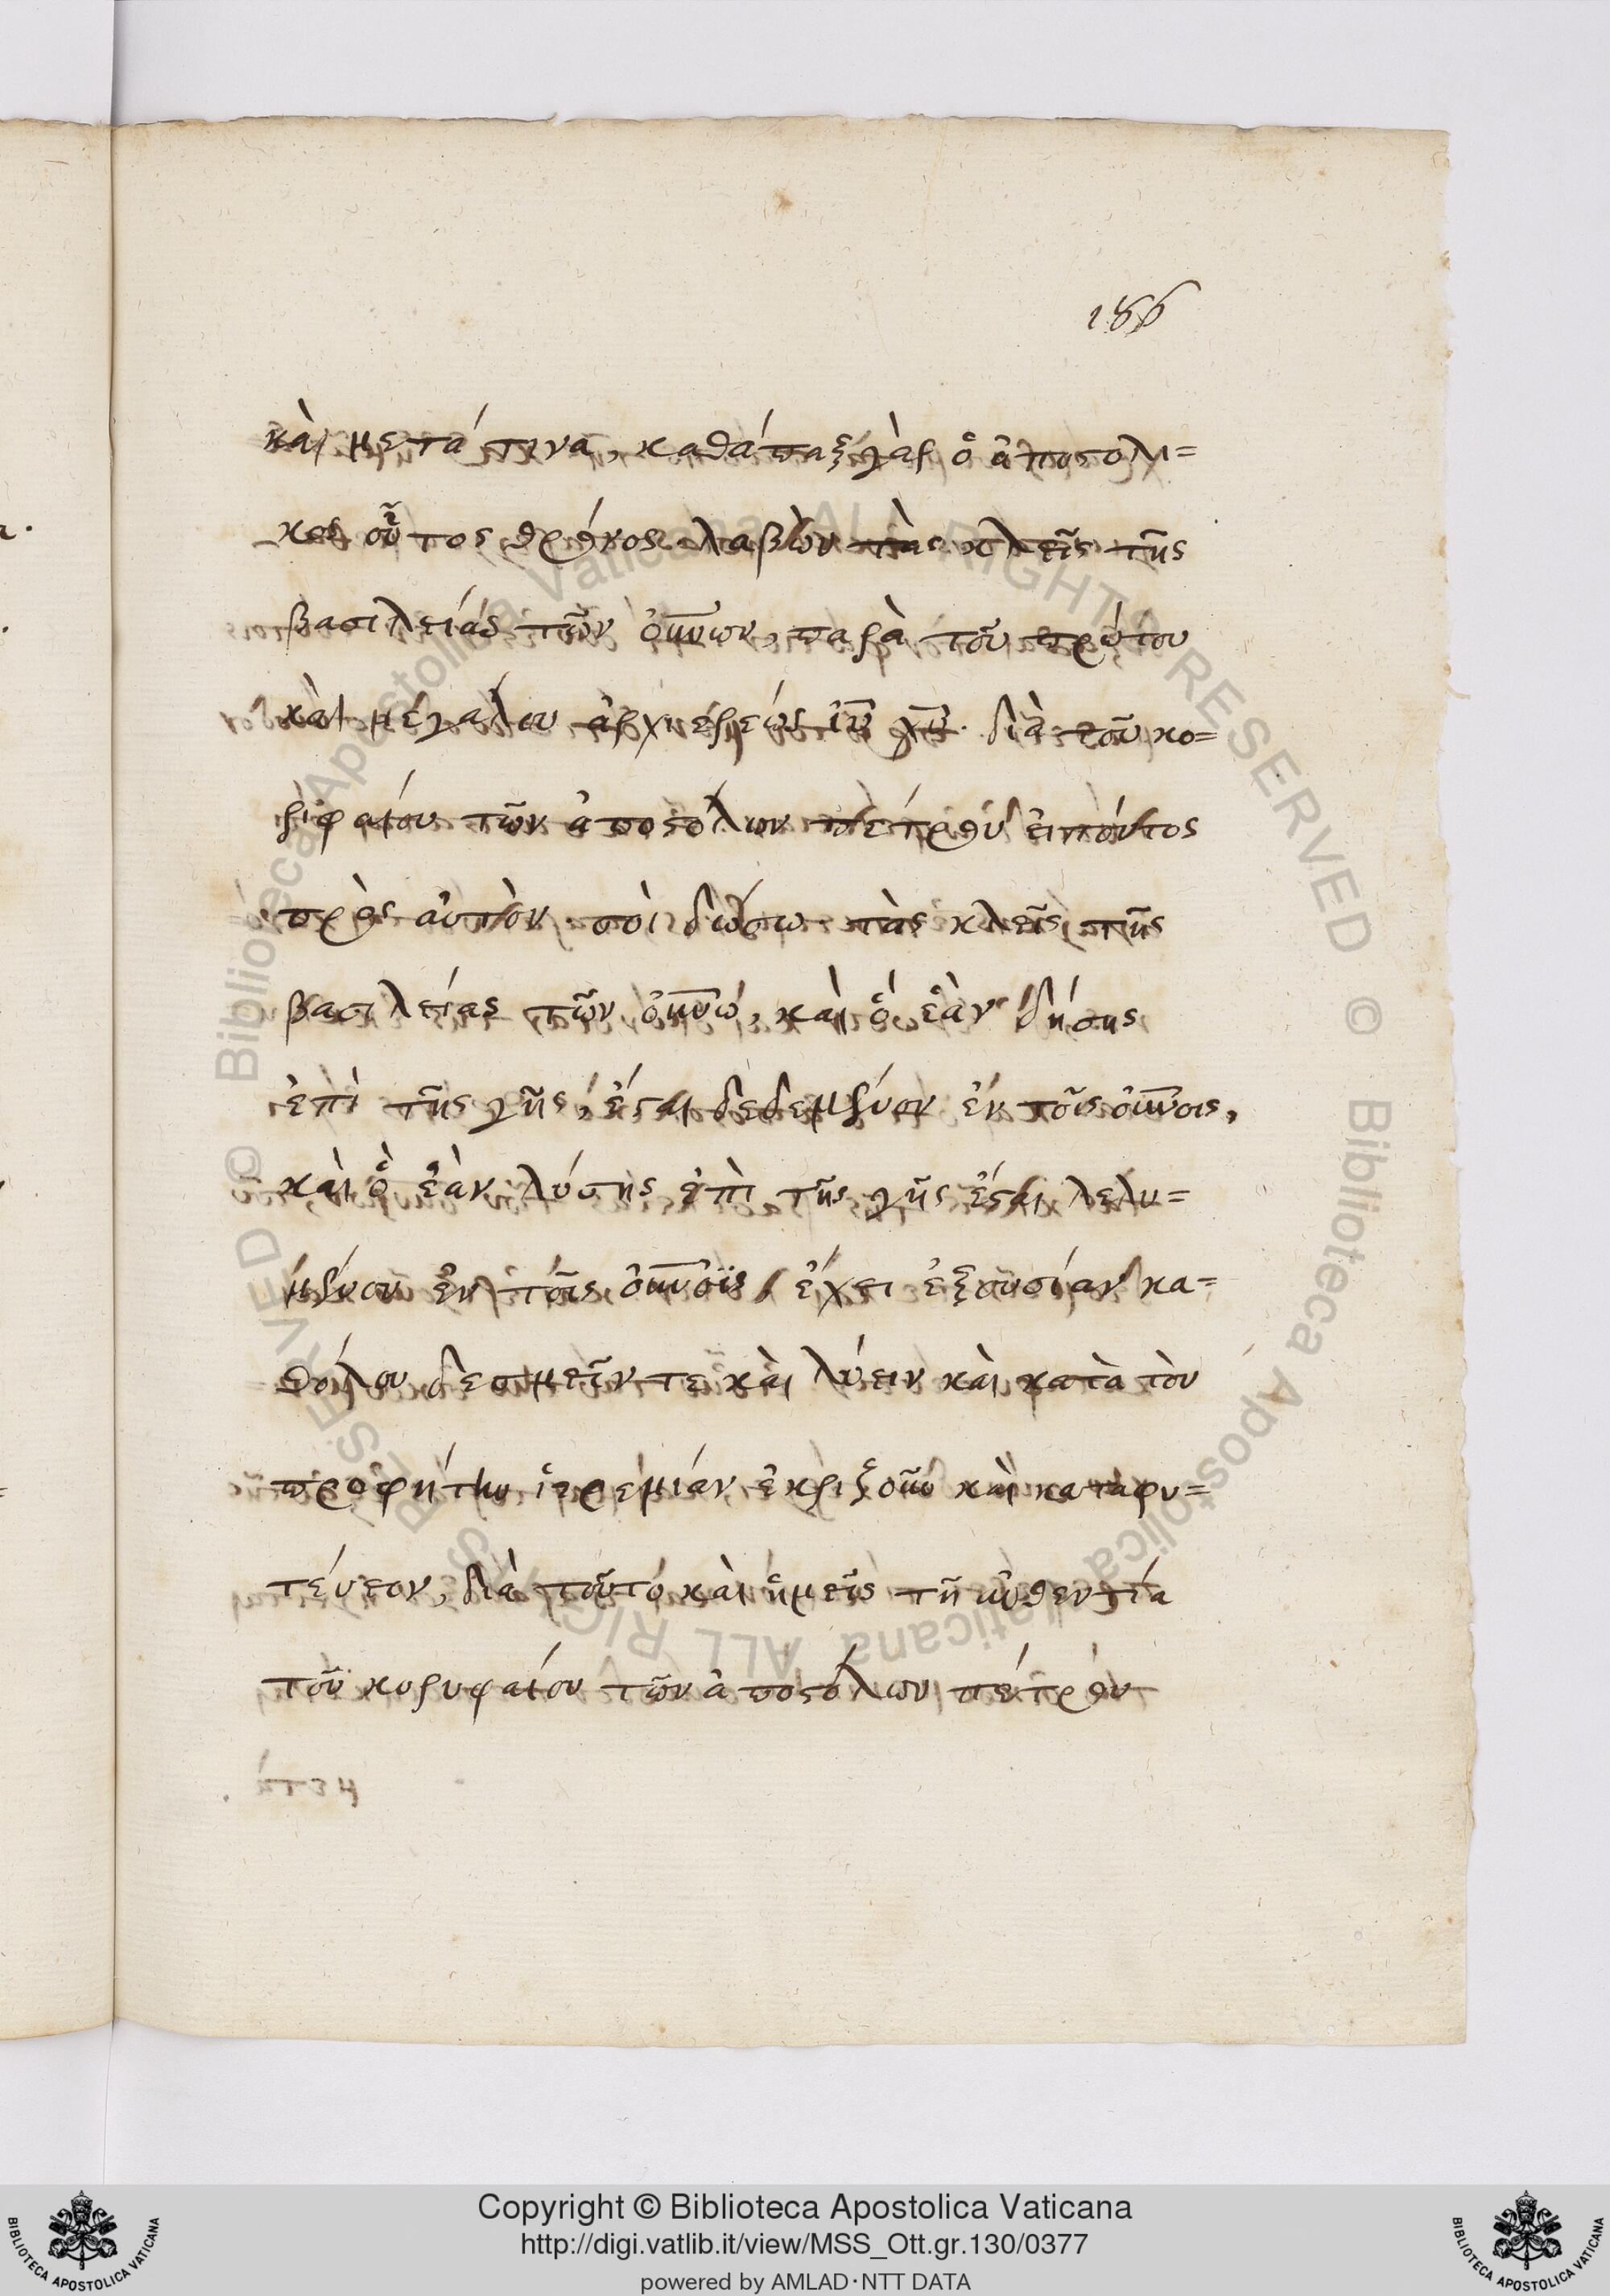 186
καὶ μετά τινα, καθάπαξ γὰρ ὁ ἀποστολι=
κὸς οὗτος θρόνος λαβὼν τὰς κλεῖς τῆς
βασιλείας τῶν οὐνων, παρὰ τοῦ πρώτου
καὶ μεγάλου ἀρχιερέως ἰυ χυ. διὰ τοῦ κο=
ριφαίου τῶν ἀποστόλων πέτρου εἰπόντος
πρὸς αὐτὸν· σοὶ δώσω τὰς κλεῖς τῆς
βασιλείας τῶν οὐνῶν, καὶ ὃ ἐὰν δήσης
ἐπὶ τῆς γῆς, ἔσται δεδεμένον ἐν τοῖς οὐνοις,
καὶ ὃ ἐὰν λύσης ἐπὶ τῆς γῆς ἔσται λελυ=
μένον ἐν τοῖς οὐνοῖς, ἔχει ἐξουσίαν κα=
θόλου δεσμεῖν τε καὶ λύειν καὶ κατὰ τὸν
προφήτην ἱερεμίαν ἐκριζοῦν καὶ καταφυ=
τέυειν, διὰ τοῦτο καὶ ἡμεῖς τῆ αὐθεντία
τοῦ κορυφαίου τῶν ἀποστόλων πέτρου
Copyright © Biblioteca Apostolica Vaticana
http://digi.vatlib.it/view/MSS_Ott.gr.130/0377
powered by AMLAD·NTT DATA
BIBLIOTECA APOSTOLICA VATICANA
BIBLIOTECA APOSTOLICA VATICANA